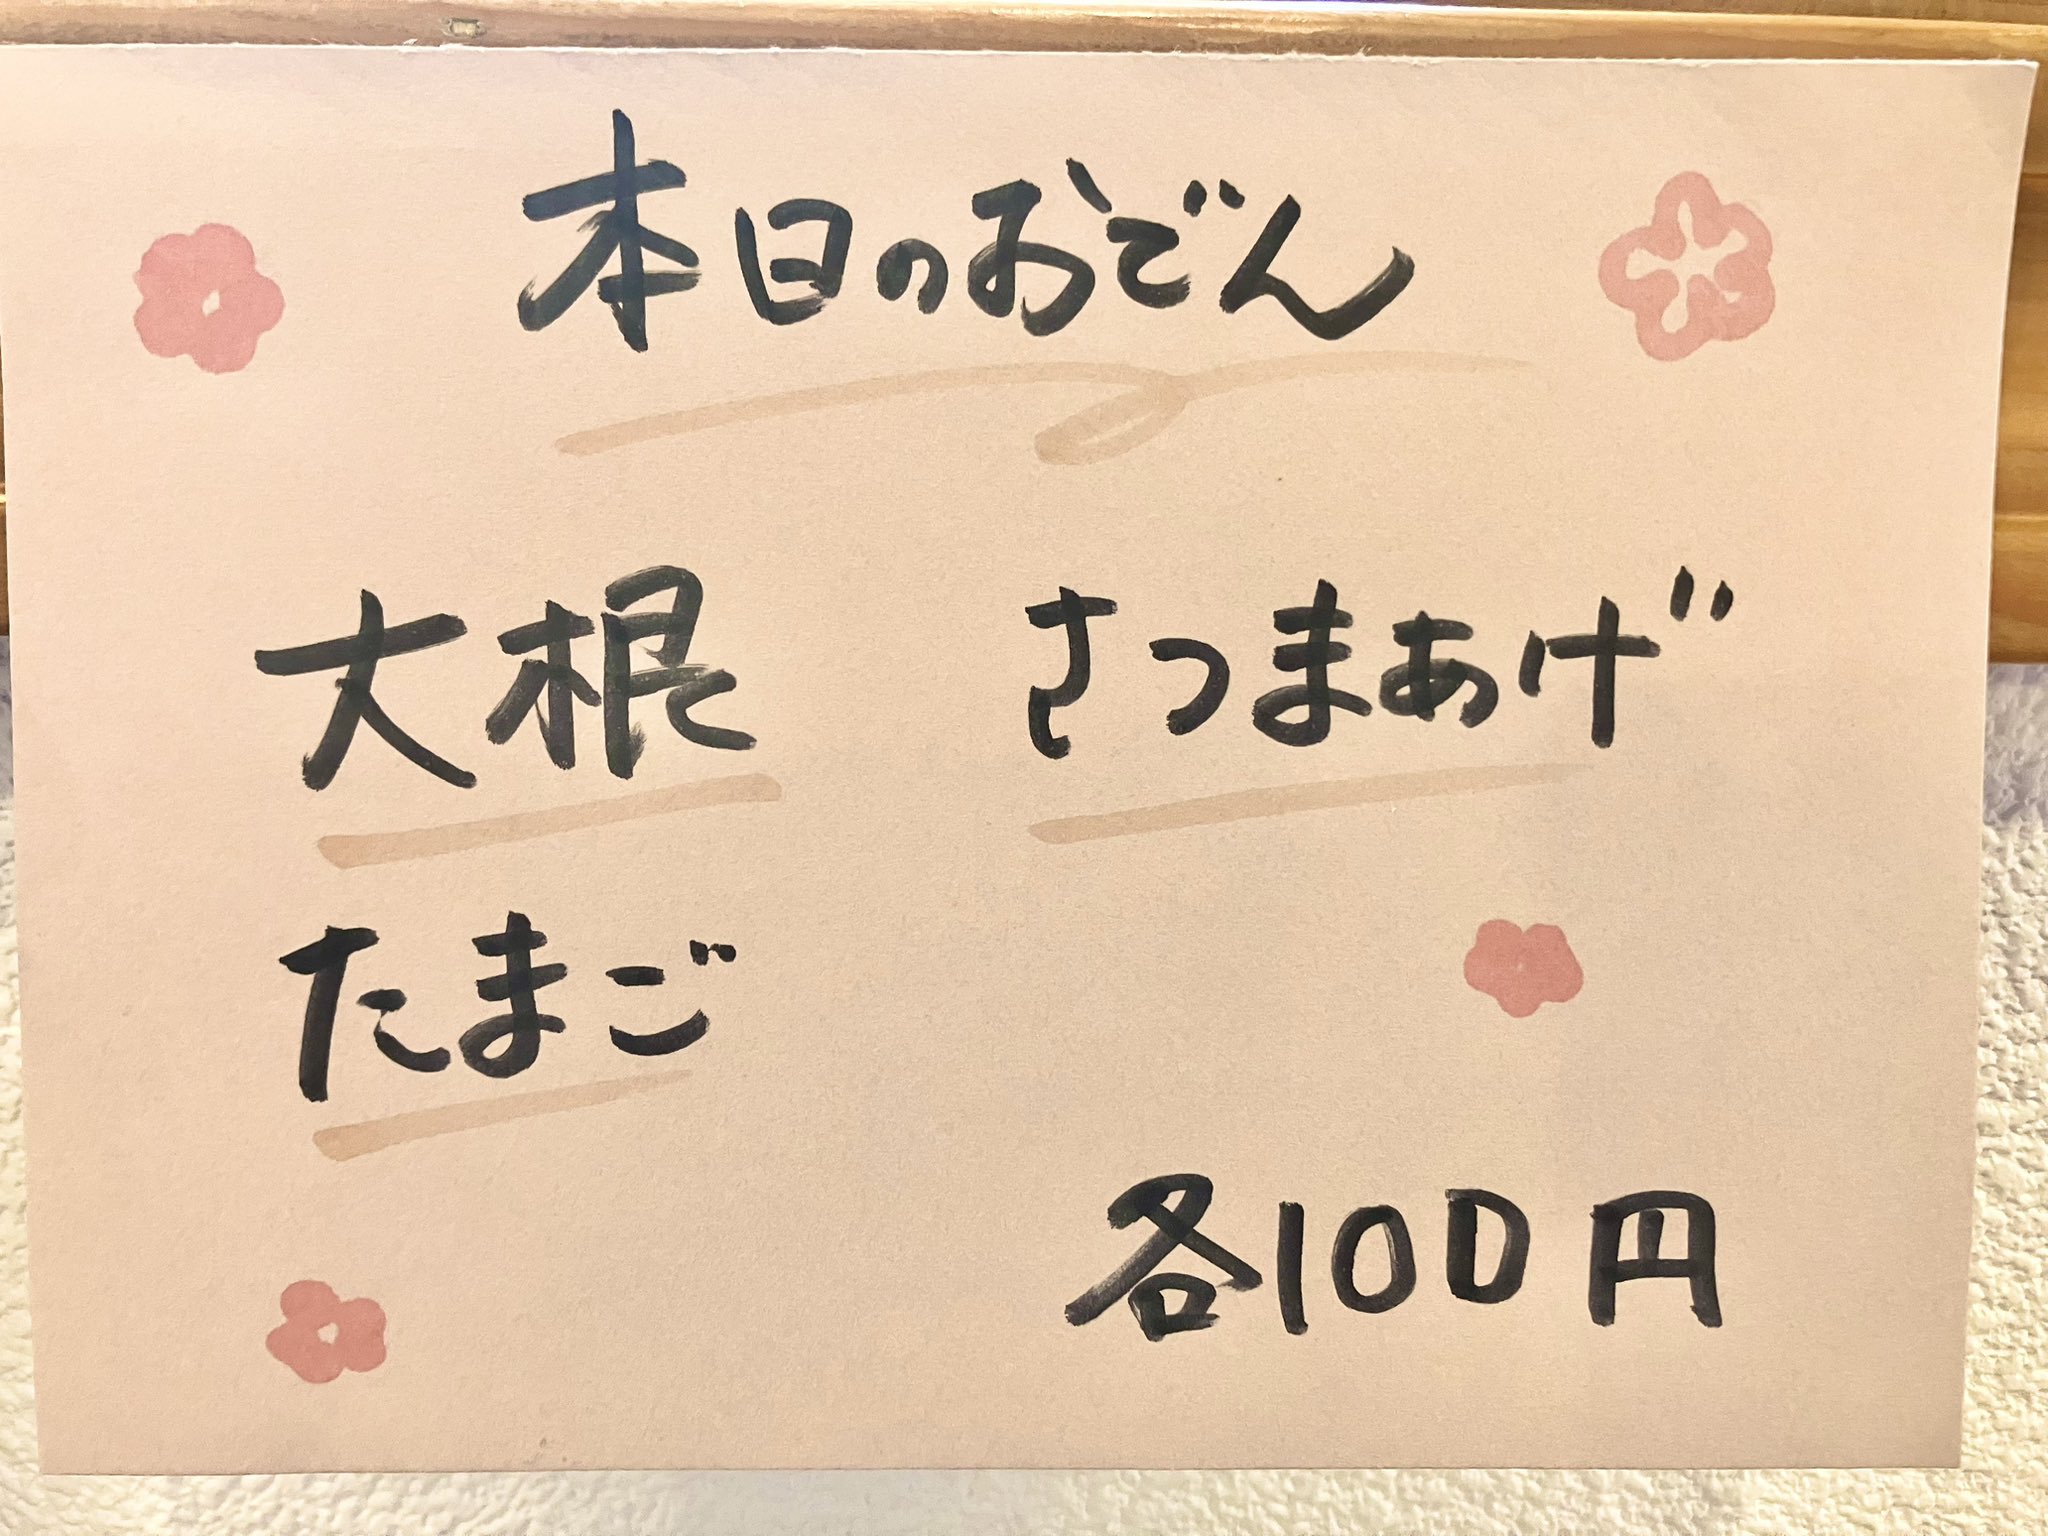 本日のおでん
大根 さつまあげ
たまご
各100円